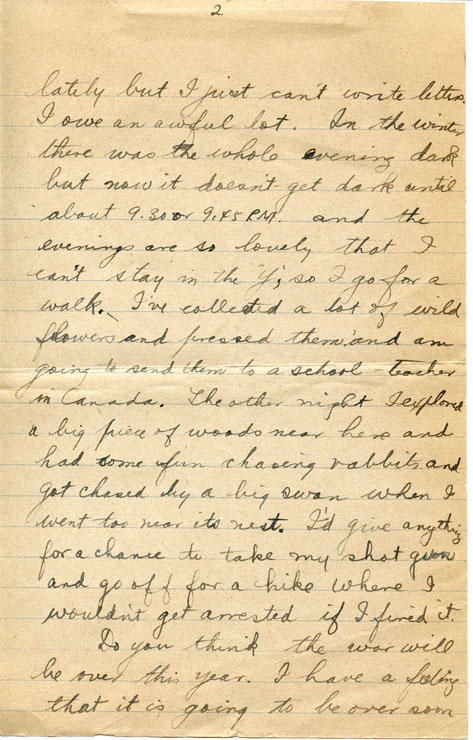 2
lately but I just can't write letters
I owe an awful lot. In the winter
there was the whole evening dark
but now it doesn't get dark until
about 9.30 or 9.45 P.M. and the
evenings are so lovely that I
can't stay in the "Y", so I go for a
walk. I've collected a lot of wild
flowers and pressed them and am
going to send them to a school teacher
in Canada. The other night I explored
a big piece of woods near here and
had some fun chasing rabbits and
got chased by a big swan when I
went too near its nest. I'd give anything
for a chance to take my shot gun
and go off for a hike where I
wouldn't get arrested if I fired it.
Do you think the war will
be over this year. I have a feeling
that it is going to be over soon